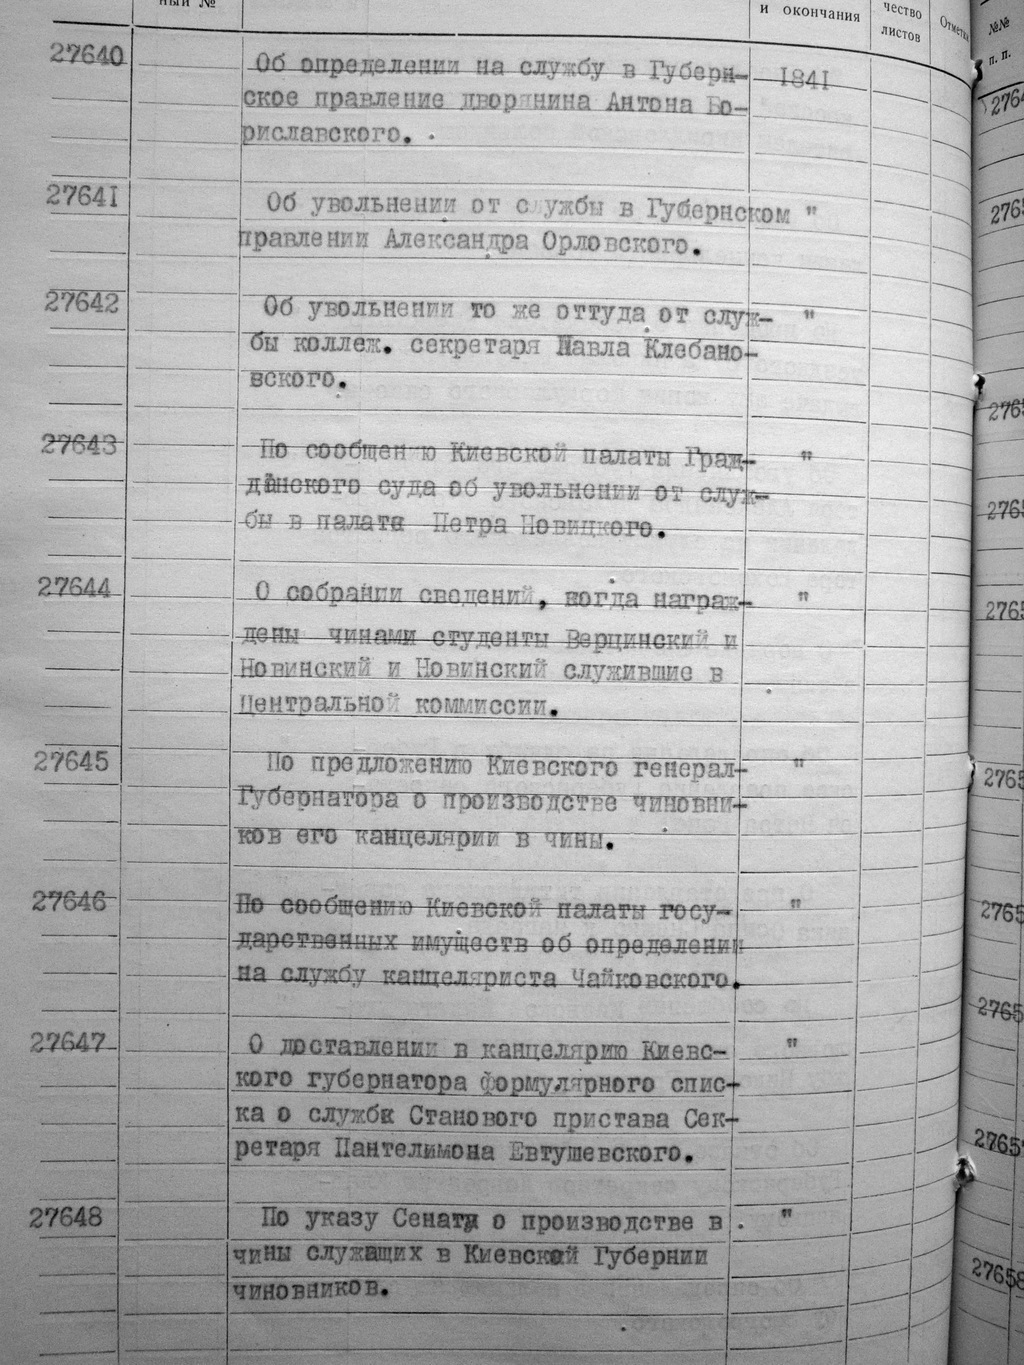 ный №
и окончания
чество
листов
Отметка
№№
п. п.
27640 Об определении на службу в Губерн- 1841
ское правление дворянина Антона Бо-
риславского.
27641 Об увольнении от службы в Губернском "
правлении Александра Орловского.
27642 Об увольнении то же оттуда от служ- "
бы коллеж. секретаря Павла Клебано-
вского.
27643 По сообщен ю Киевской палаты Граж- "
данского суда об увольнении от служ-
бы в палате Петра Новицкого.
27644 О собрании сведений, когда награж- "
дены чинами студенты Верцинский и
Новинский и Новинский служившие в
Центральной коммиссии.
27645 По предложению Киевского генерал- "
Губернатора о производстве чиновни-
ков его канцелярии в чины.
27646 По сообщению Киевской палаты госу- "
дарственных имуществ об определении
на службу канцеляриста Чайковского.
27647 О доставлении в канцелярию Киевс- "
кого губернатора формулярного спис-
ка о службе Станового пристава Сек-
ретаря Пантелимона Евтушевского.
27648 По указу Сената о производстве в . "
чины служащих в Киевской Губернии
чиновников.
2764
2765
2765
2765
2765
2765
2765
2765
2765
27658